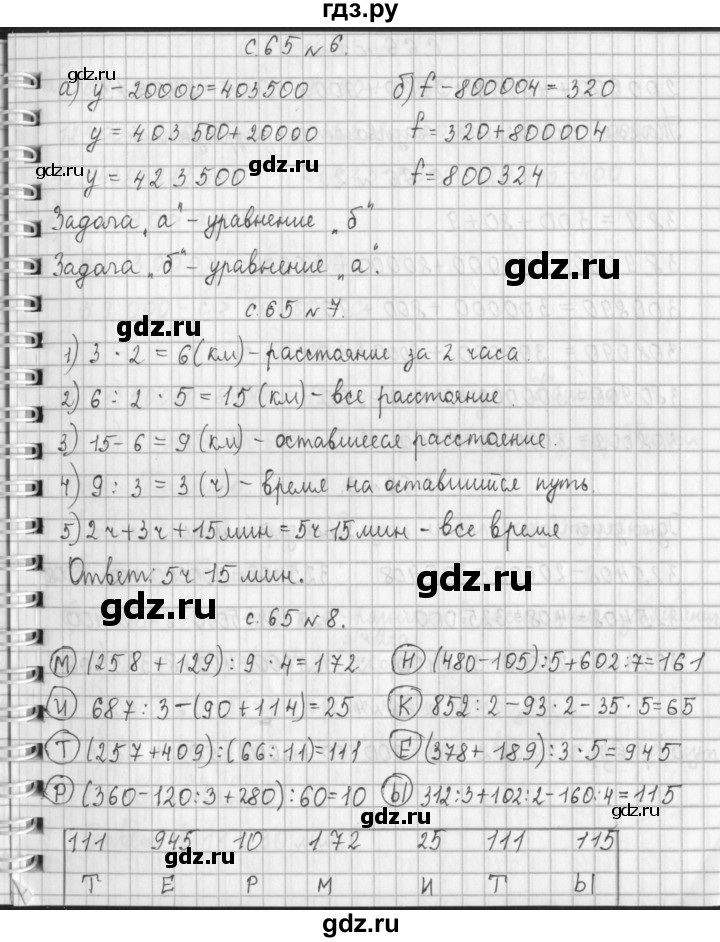 гдз.ру
с.65 №6.
а) y-20000=403500 б) f-800004=320
y=403500+20000 f=320+800004
gdz.ru
gdz.ru
y=423500 f=800324
Задача „а"-уравнение „б"
Задача „б"-уравнение „а".
gdz.ru
с.65 №7.
gdz.ru
1) 3·2=6(км)-расстояние за 2 часа.
2) 6:2·5=15(км)-все расстояние.
3) 15-6=9(км)-оставшееся расстояние.
4) 9:3=3(ч)-время на оставшийся путь.
5) 2ч+3ч+15мин=5ч 15мин-все время
Ответ: 5ч 15мин.
gdz.ru
gdz.ru
с.65 №8.
М (258+129):9·4=172 Н (480-105):5+602:7=161
И 687:3-(90+114)=25 К 852:2-93·2-35·5=65
Т (257+409):(66:11)=111 Е (378+189):3·5=945
Р (360-120:3+280):60=10 Ы 312:3+102:2-160:4=115
gdz.ru
gdz.ru
111 945 10 172 25 111 115
gdz.ru
Т Е Р М И Т Ы
gdz.ru